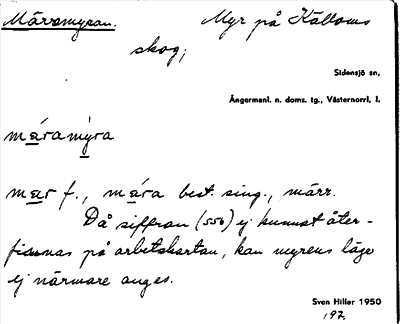 Märramyran. Myr på Källoms
skog;
Sidensjö sn,
Ångermanl. n. doms. tg., Västernorrl. l.
märamy̍ra
mær f., mæ̍ra best. sing., märr.
Då siffran (550) ej kunnat åter-
finnas på arbetskartan, kan myrens läge
ej närmare anges.
Sven Hiller 1950
197